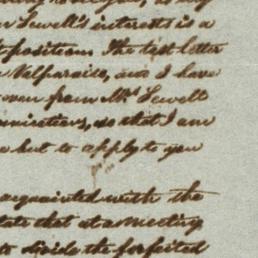 Sewell's interests is a
position. The last letter
Valparaiso, and I have
from Mrs Sewell
so that I am
but to apply to you
acquainted with the
that at a meeting
to divide the forfeited